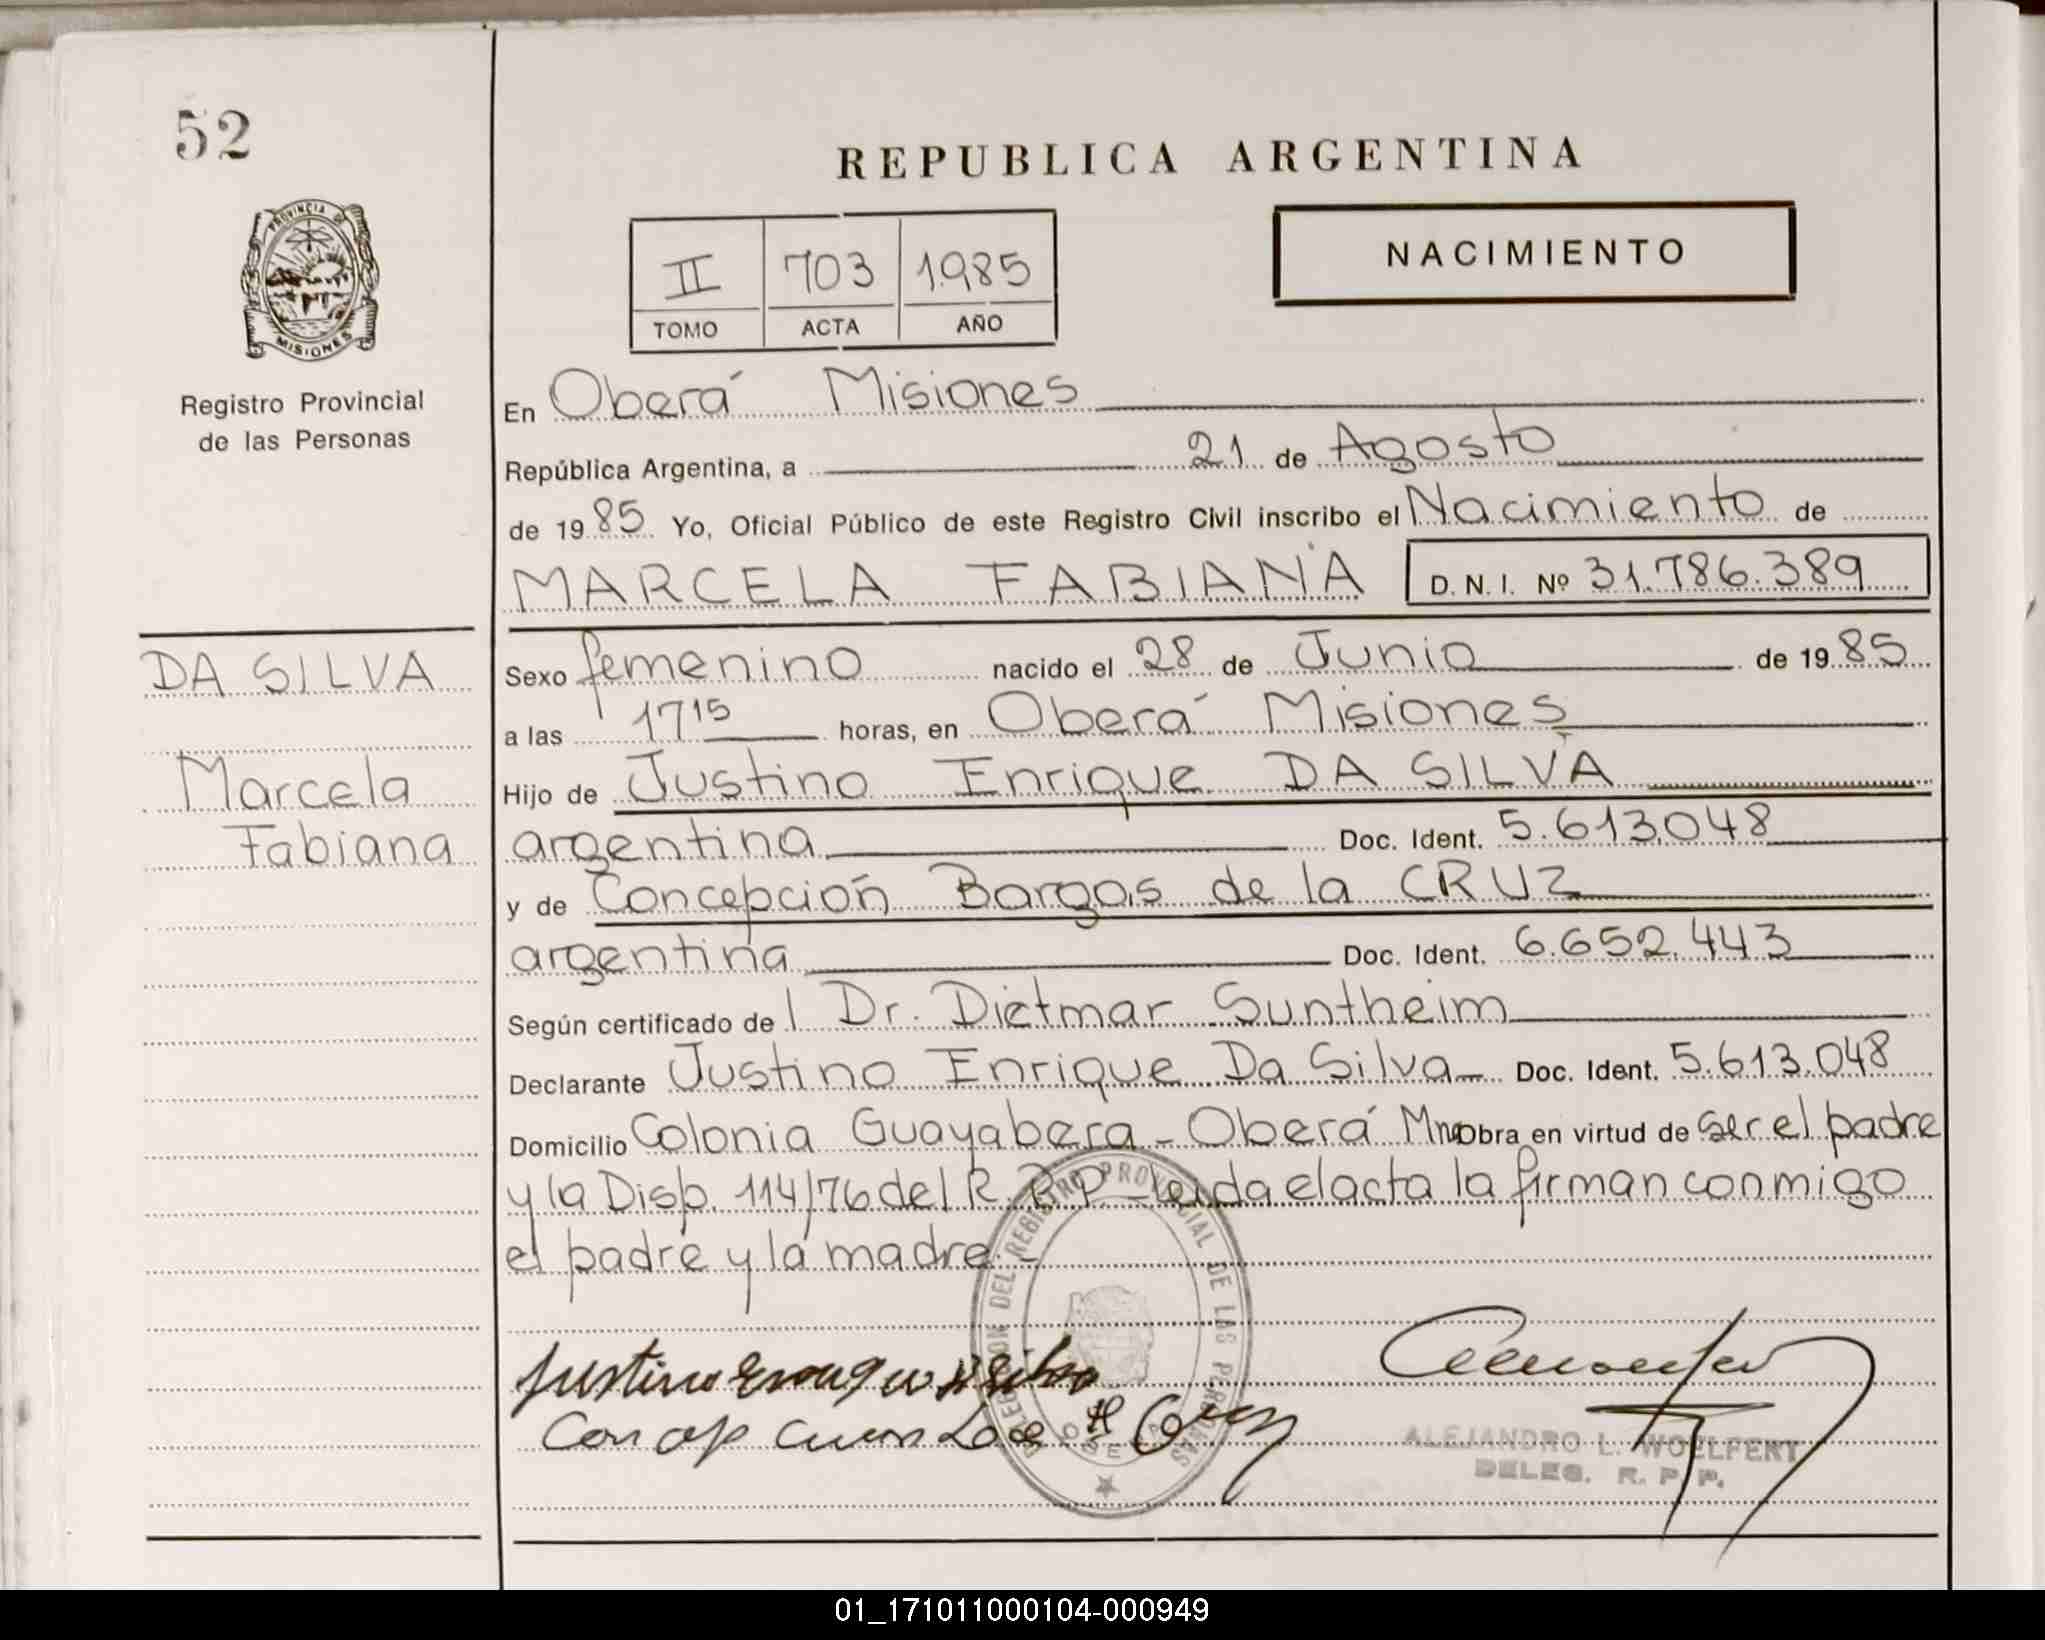 52
PROVINCIA DE
MISIONES
Registro Provincial
de las Personas
REPUBLICA ARGENTINA
II 703 1.985
TOMO ACTA AÑO
NACIMIENTO
En Oberá Misiones
República Argentina, a 21 de Agosto
de 1985 Yo, Oficial Público de este Registro Civil inscribo el Nacimiento de
MARCELA FABIANA D. N. I. Nº 31.786.389
DA SILVA
Marcela
Fabiana
Sexo femenino nacido el 28 de Junio de 1985
a las 17 15 horas, en Oberá Misiones
Hijo de Justino Enrique DA SILVA
argentina Doc. Ident. 5.613.048
y de Concepción Bargas de la CRUZ
argentina Doc. Ident. 6.652.443
Según certificado de l Dr. Dietmar Suntheim
Declarante Justino Enrique Da Silva Doc. Ident. 5.613.048
Domicilio Colonia Guayabera - Oberá Mnes Obra en virtud de ser el padre
y la Disp. 114/76 del R.P.P. - Leida el acta la firman conmigo
el padre y la madre.-
DELEGACION DEL REGISTRO PROVINCIAL DE LAS PERSONAS
OBERA
ALEJANDRO L. WOELFERT
DELEG. R. P. P.
01_171011000104-000949